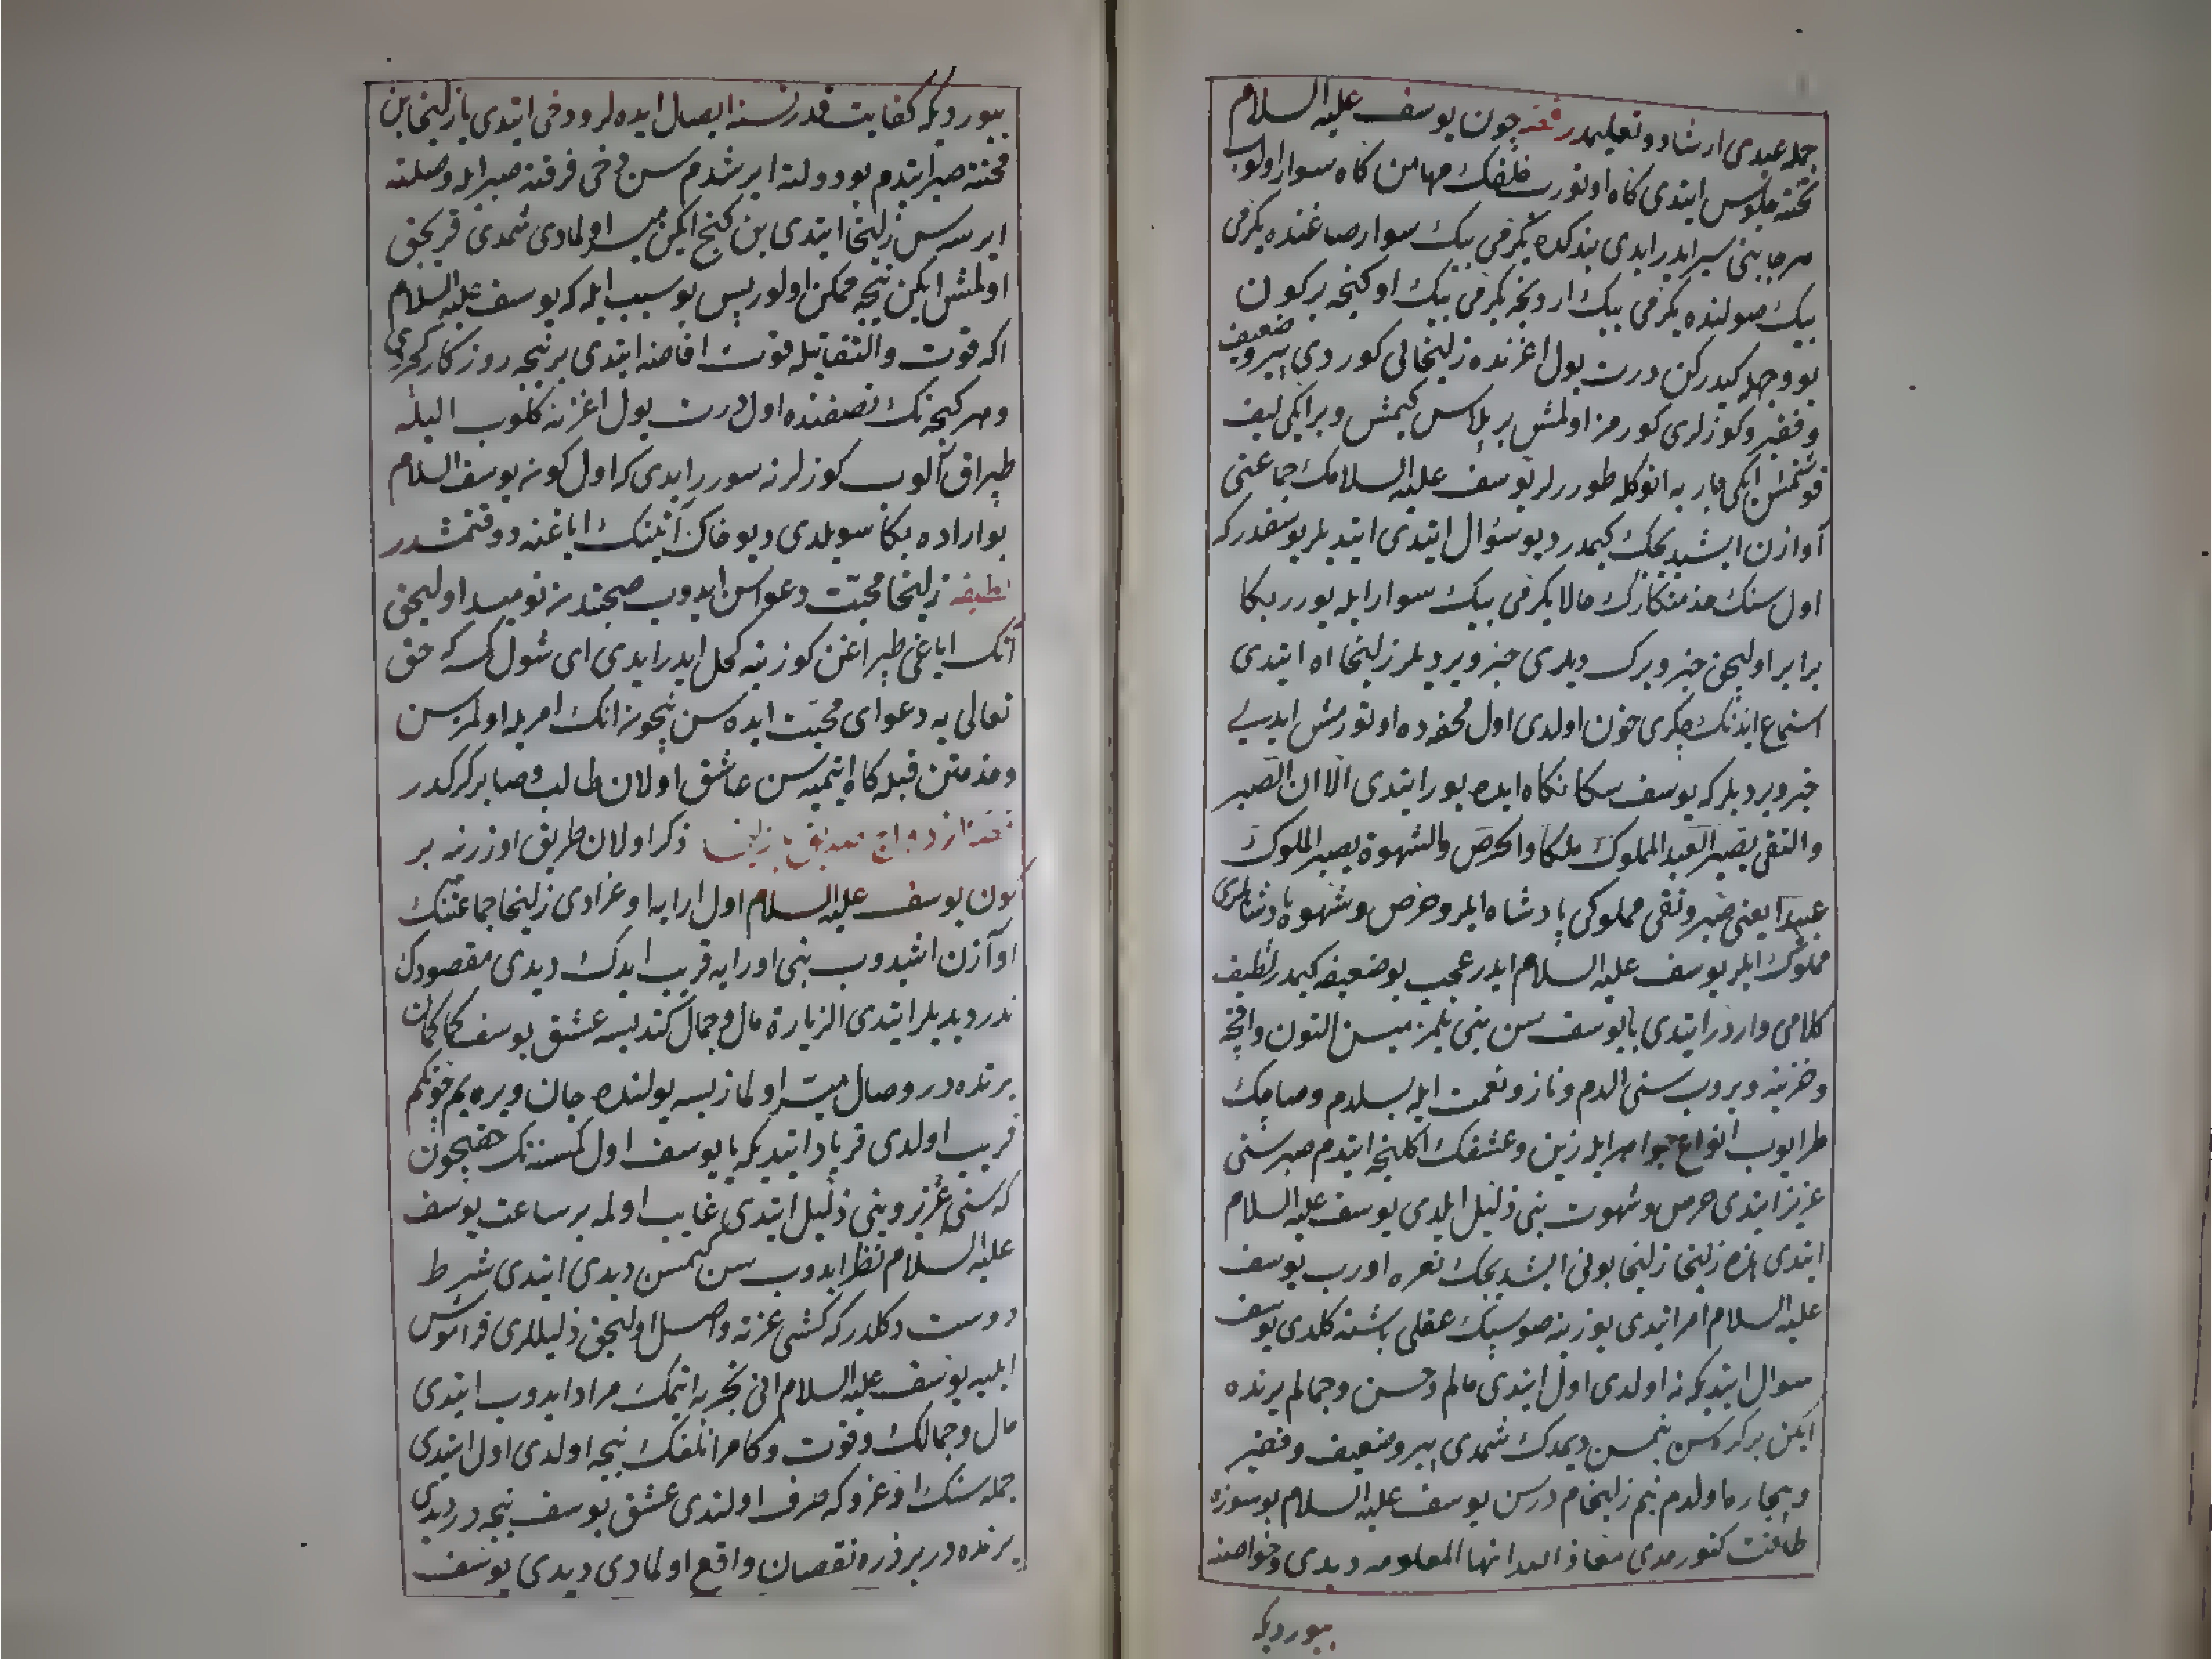 جمله عبدی ارشاد و تعلیمدر قصه چون یوسف علیه السلام
تخته جلوس ایتدی کاه اوتورب خلقك مهامن کاه سوار اولوب
هر جانبنی سیر ایدر ایدی بندکده یکرمی بیك سوار صاغنده یکرمی
بیك صولنده یکرمی بیك اردنجه یکرمی بیك اوکنجه بر کون
بو وجهله کیدرکن درت یول اغزنده زلیخایی کوردی پیر و ضعیف
و فقیر و کوزلری کورمز اولمش بر پلاس کیمش و بر ایکی لیف
قوشنمش ایکی جاریه انوکله طوررلر یوسف علیه السلامك جماعتی
آوازن ایشیدیجك کیمدر دیو سؤال ایتدی ایتدیلر یوسفدر که
اول سنك خدمتکارك حالا یکرمی بیك سوار ایله یورر بکا
برابر اولیجق خبر ویرك دیدی خبر ویردیلر زلیخا اه ایتدی
استماع ایدنك جکری خون اولدی اول محفه ده اوتورمش ایدی
خبر ویردیلر که یوسف سکا نکاه ایده یورر ایتدی الا ان الصبر
والتقی یصیر العبد المملوك ملکا والحرص والشهوة یصیر الملوك
عبیدا یعنی صبر و تقی مملوکی پادشاه ایلر و حرص و شهوة پادشاهلری
مملوك ایلر یوسف علیه السلام ایدر عجب بو ضعیفه کیمدر لطیف
کلامی واردر ایتدی یا یوسف سن بنی بلمزمیسن التون و اقچه
و خزینه ویروب سنی الدم و ناز و نعمت ایله بسلدم و صاچك
طرایوب انواع جواهر ایله زین و عشقك اکلنجه ایتدم صبر سنی
عزیز ایتدی حرص و شهوت بنی ذلیل ایلدی یوسف علیه السلام
ایتدی زلیخا زلیخا بونی ایشدیجك نعره اورب یوسف
علیه السلام امر ایتدی یوزینه صو سپك عقلی باشنه کلدی یوسف
سوال ایتدیکه نه اولدی اول ایتدی مالم و حسن و جمالم یرنده
ایکن بر کره سن بنمسن دیمدك شمدی پیر و ضعیف و فقیر
و بیچاره اولدم بنم زلیخام درسن یوسف علیه السلام بو سوزه
طاقت کتورمدی معاذ الله انها المعلومه دیدی و خواصنه
بیوردیکه
بیوردیکه کفایت قدر نسنه ایصال ایده لر و دخی ایتدی یا زلیخا بن
محنته صبر ایتدم بو دولته ایرشدم سن دخی فرقته صبر ایله وصلته
ایرسه سن زلیخا ایتدی بن کنج ایکن میسر اولمادی شمدی قریجق
اولمش ایکن نیجه ممکن اولور پس بو سبب ایله که یوسف علیه السلام
اکه قوت و التفاتیله قوت افاضه ایتدی بر نیجه روزکار کچردی
و هر کیجه نك نصفنده اول درت یول اغزینه کلوب الیله
طپراق الوب کوزلرینه سورر ایدی که اول کونه یوسف السلام
بو اراده بکا سویلدی دیو خاك آتینك ایاغنه دوقنمشدر
لطیفه زلیخا محبت دعواسن ایدوب صحبتندن نومید اولیجق
آنك ایاغی طپراغن کوزینه کحل ایدر ایدی ای شول کسه که حق
تعالی یه دعوای محبت ایده سن نیچون انك امریله اولمزسن
و خدمتن قبله کاه ایتمیه سن عاشق اولان طالب و صابر کرکدر
قصه ازدواج صدیق با زلیخا ذکر اولان طریق اوزرنه بر
کون یوسف علیه السلام اول ارایه اوغرادی زلیخا جماعتنك
آوازن اشیدوب بنی اورایه قریب ایدك دیدی مقصودك
ندر دیدیلر ایتدی الزیارة مال و جمال کتدیسه عشق یوسف کما کان
یرنده در وصال میسر اولمازیسه یولنده جان ویره یم چونکم
قریب اولدی فریاد ایتدیکه یا یوسف اول کسنه نك حقیچون
که سنی عزیز و بنی ذلیل ایتدی غایب اولمه بر ساعت یوسف
علیه السلام نظر ایدوب سن کمسن دیدی ایتدی شرط
دوست دکلدر که کشی عزته واصل اولیجق ذلیللری فراموش
ایلیه یوسف علیه السلام انی تجربه ایتمك مراد ایدوب ایتدی
مال و جمالك و قوت و کامرانلغك نیجه اولدی اول ایتدی
جمله سنك اوغروکه صرف اولندی عشق یوسف نیجه در دیدی
یرنده در بر ذره نقصان واقع اولمادی دیدی یوسف